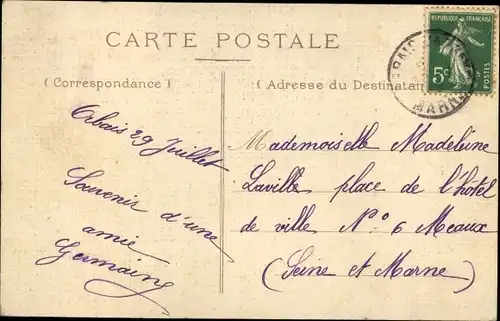 CARTE POSTALE
REPUBLIQUE FRANÇAISE
5c
POSTES
MARNE
( Correspondance )
( Adresse du Destinatai
Orbais 29 Juillet
Souvenir d'une
amie
Germaine
Mademoiselle Madeleine
Laville place de l'hôtel
de ville N° 6 Meaux
(Seine et Marne)